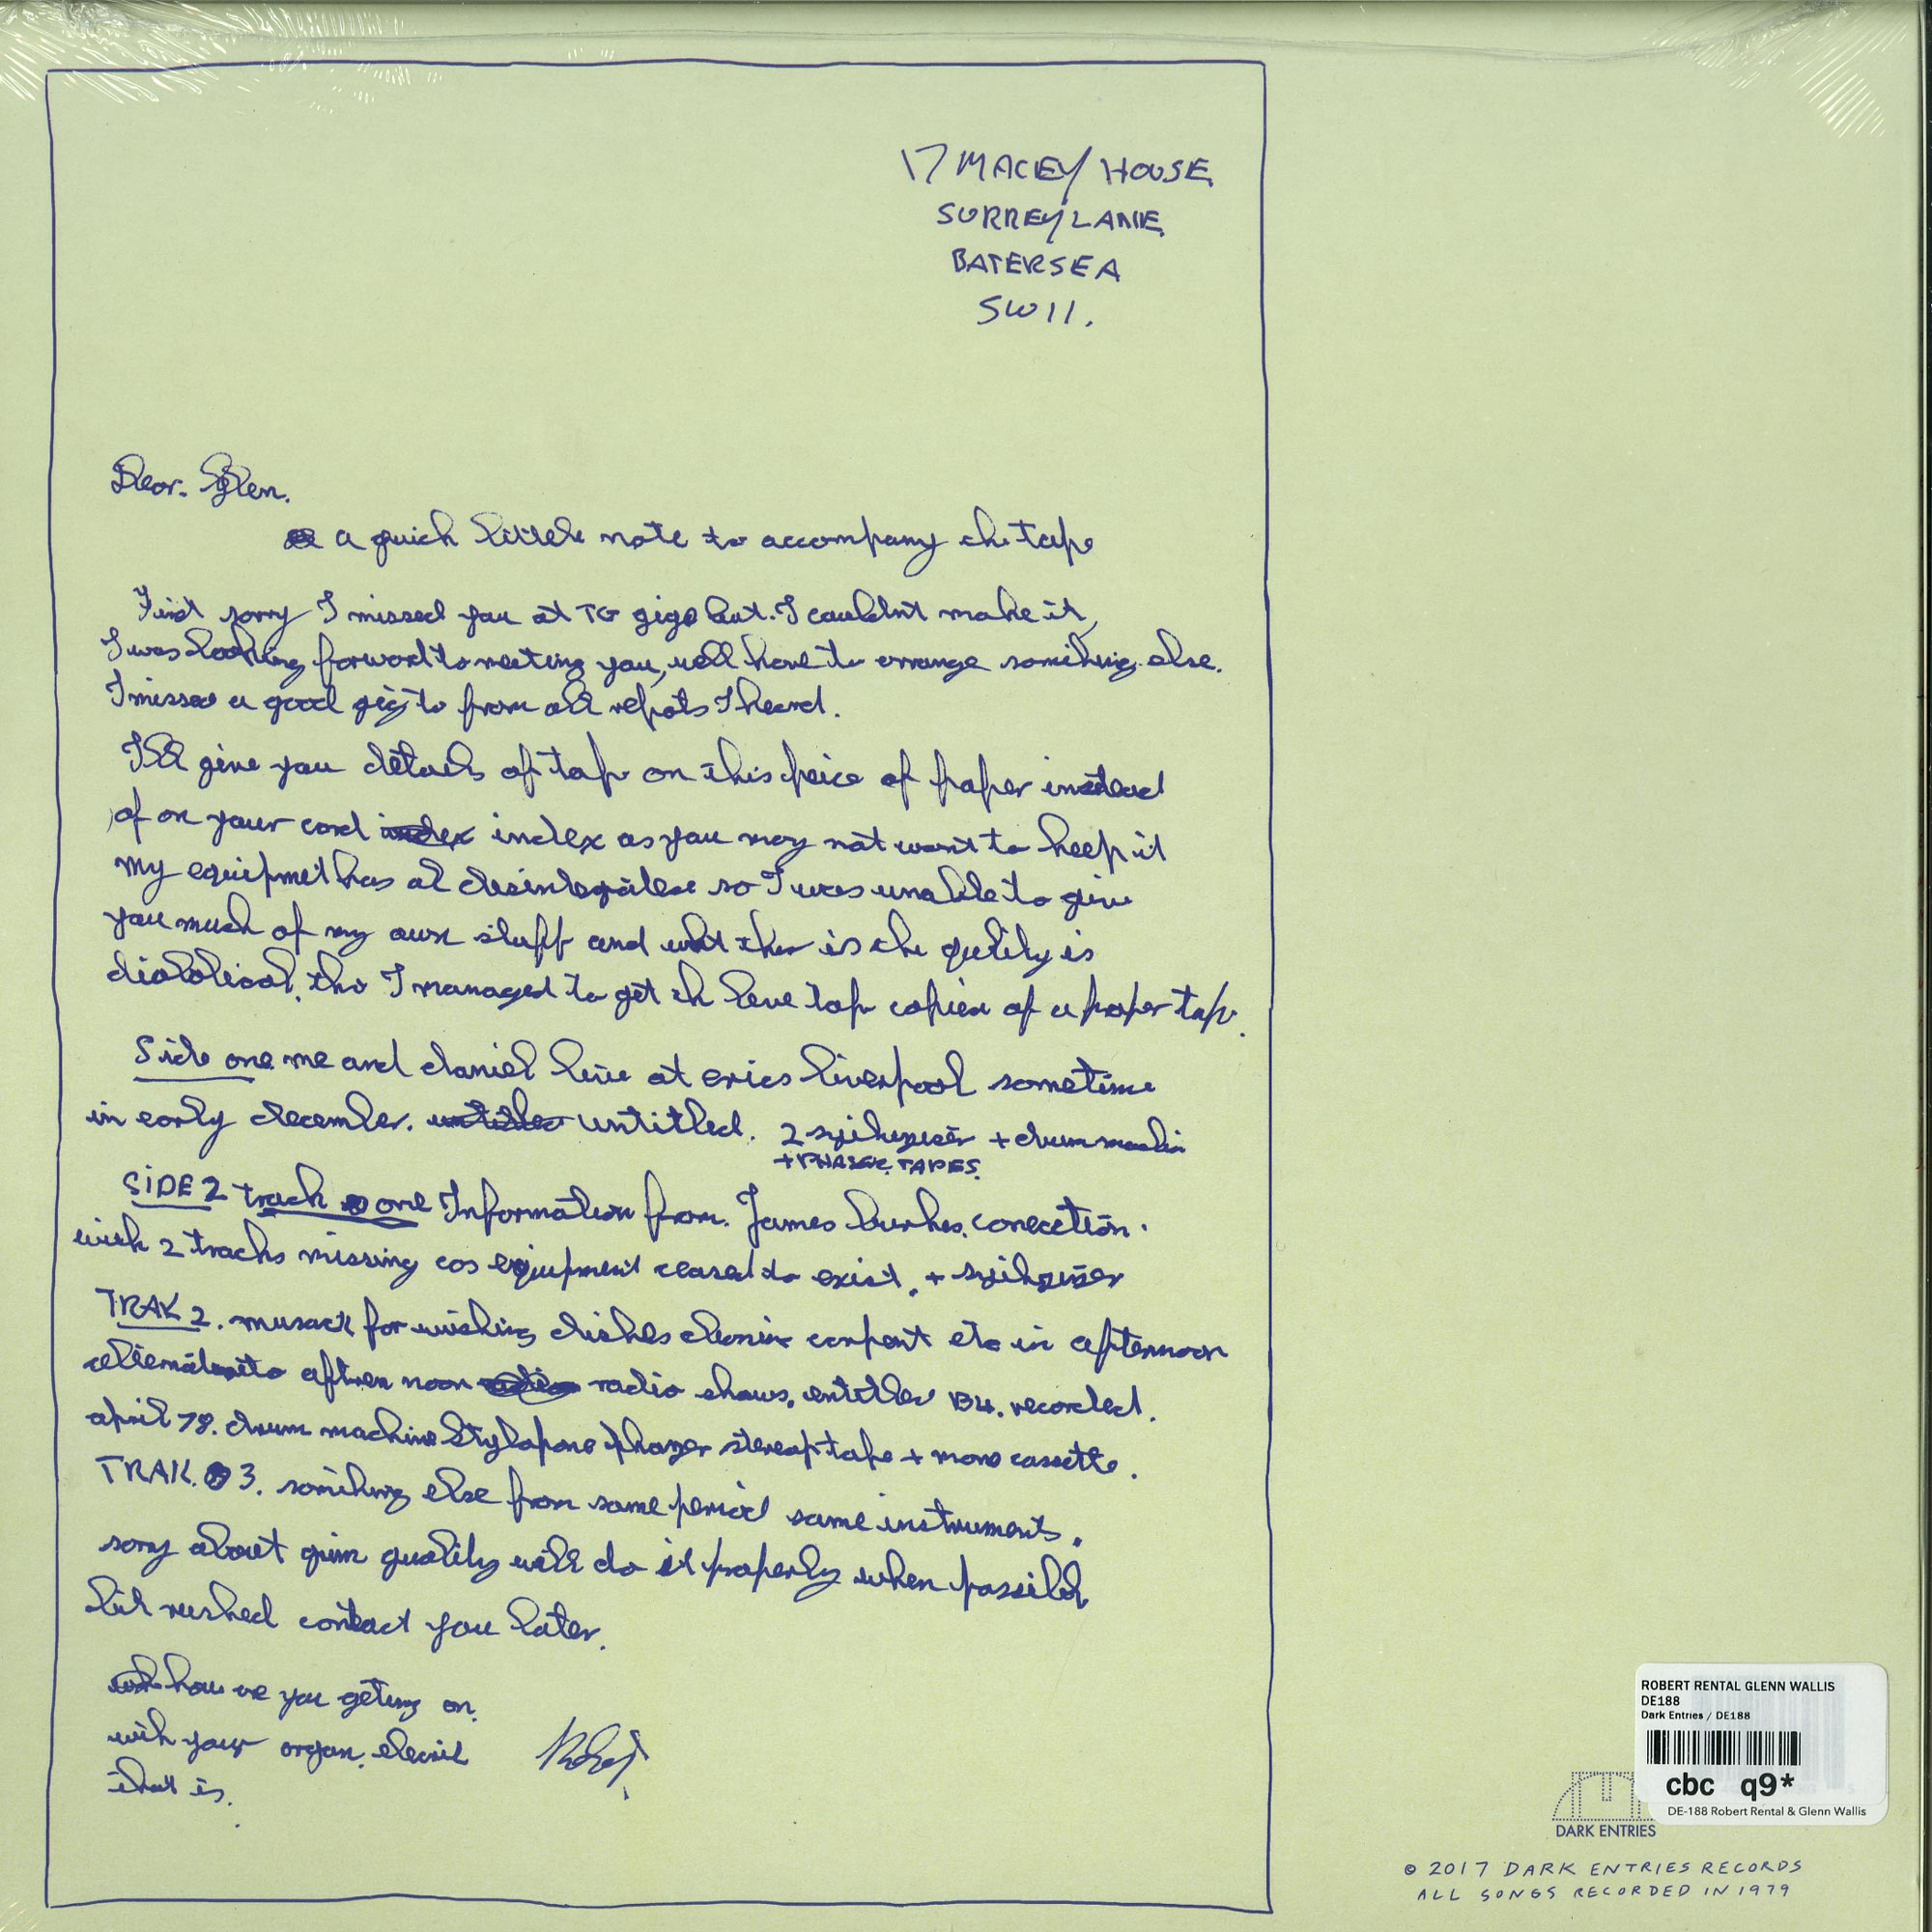 17 MACEY HOUSE
SURREY LANE
BATERSEA
SW11.
Dear. Glen.
a quick little note to accompany the tape
First sorry I missed you at TG gigs but. I couldnt make it,
I was looking forward to meeting you, well have to arrange somthing else.
I missed a good gig to from all repots I heard.
I'll give you details of tape on this peice of paper instead
of on your card index index as you may not want to keep it
my equipmet has al desintegrated so I was unable to give
you much of my own stuff and what ther is the qulity is
diabolical, tho I managed to get th live tap copied of a proper tap.
Side one me and daniel live at erics liverpool sometime
in early december. untitled untitled. 2 + drum
+ PHASER TAPES.
SIDE 2 track one Information from. James burkes. conection.
with 2 tracks missing cos equipment ceased to exist. +
TRAK 2. musack for wishing dishes cleanin carpent etc in afternoon
aftren noon radio radio shows. entitled B4. recorded.
april 78. drum machine Stylapone phazer stereo tape + mono cassette.
TRAK. 3. somthing else from same period same instruments.
sorry about quality will do it properly when possible
bit rushed contact you later.
how are you geting on.
with your organ.
that is.
Robert
ROBERT RENTAL GLENN WALLIS
DE188
Dark Entries / DE188
cbc q9*
DE-188 Robert Rental & Glenn Wallis
DARK ENTRIES
© 2017 DARK ENTRIES RECORDS
ALL SONGS RECORDED IN 1979